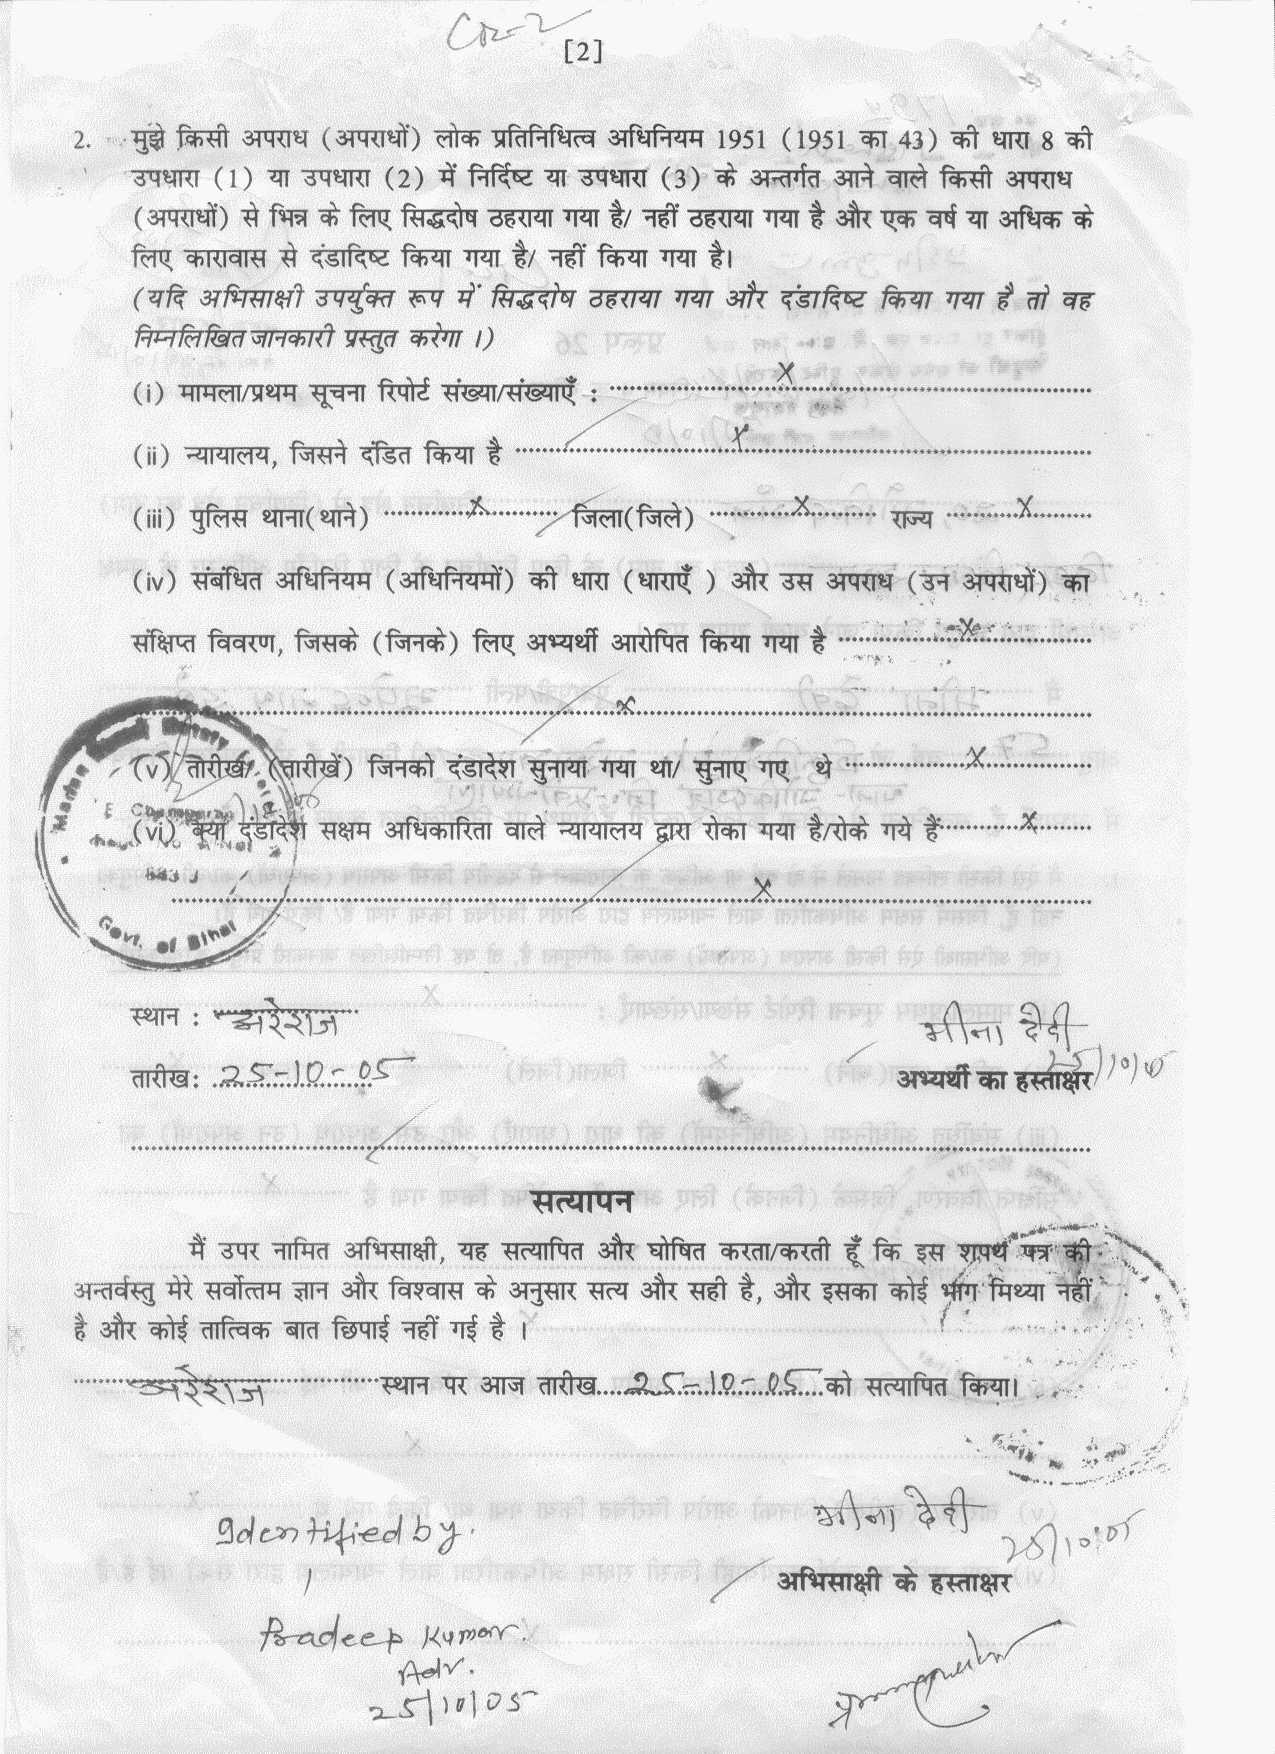 [2]
2. मुझे किसी अपराध (अपराधों) लोक प्रतिनिधित्व अधिनियम 1951 (1951 का 43) की धारा 8 की
उपधारा (1) या उपधारा (2) में निर्दिष्ट या उपधारा (3) के अन्तर्गत आने वाले किसी अपराध
(अपराधों) से भिन्न के लिए सिद्धदोष ठहराया गया है/ नहीं ठहराया गया है और एक वर्ष या अधिक के
लिए कारावास से दंडादिष्ट किया गया है/ नहीं किया गया है।
(यदि अभिसाक्षी उपर्युक्त रूप में सिद्धदोष ठहराया गया और दंडादिष्ट किया गया है तो वह
निम्नलिखित जानकारी प्रस्तुत करेगा ।)
(i) मामला/प्रथम सूचना रिपोर्ट संख्या/संख्याएँ : x
(ii) न्यायालय, जिसने दंडित किया है x
(iii) पुलिस थाना(थाने) x जिला(जिले) x राज्य x
(iv) संबंधित अधिनियम (अधिनियमों) की धारा (धाराएँ ) और उस अपराध (उन अपराधों) का
संक्षिप्त विवरण, जिसके (जिनके) लिए अभ्यर्थी आरोपित किया गया है x
x
(v) तारीख/ (तारीखें) जिनको दंडादेश सुनाया गया था/ सुनाए गए थे x
(vi) क्या दंडादेश सक्षम अधिकारिता वाले न्यायालय द्वारा रोका गया है/रोके गये हैं x
x
Madan Notary
E Champaran
Govt. of Bihar
स्थान : अरेराज
मीना देवी
25/10/05
तारीख: 25-10-05
अभ्यर्थी का हस्ताक्षर
सत्यापन
मैं उपर नामित अभिसाक्षी, यह सत्यापित और घोषित करता/करती हूँ कि इस शपथ पत्र की
अन्तर्वस्तु मेरे सर्वोत्तम ज्ञान और विश्वास के अनुसार सत्य और सही है, और इसका कोई भाग मिथ्या नहीं
है और कोई तात्विक बात छिपाई नहीं गई है ।
अरेराज स्थान पर आज तारीख 25-10-05 को सत्यापित किया।
मीना देवी
25/10/05
अभिसाक्षी के हस्ताक्षर
Identified by.
Pradeep Kumar.
Adv.
25/10/05